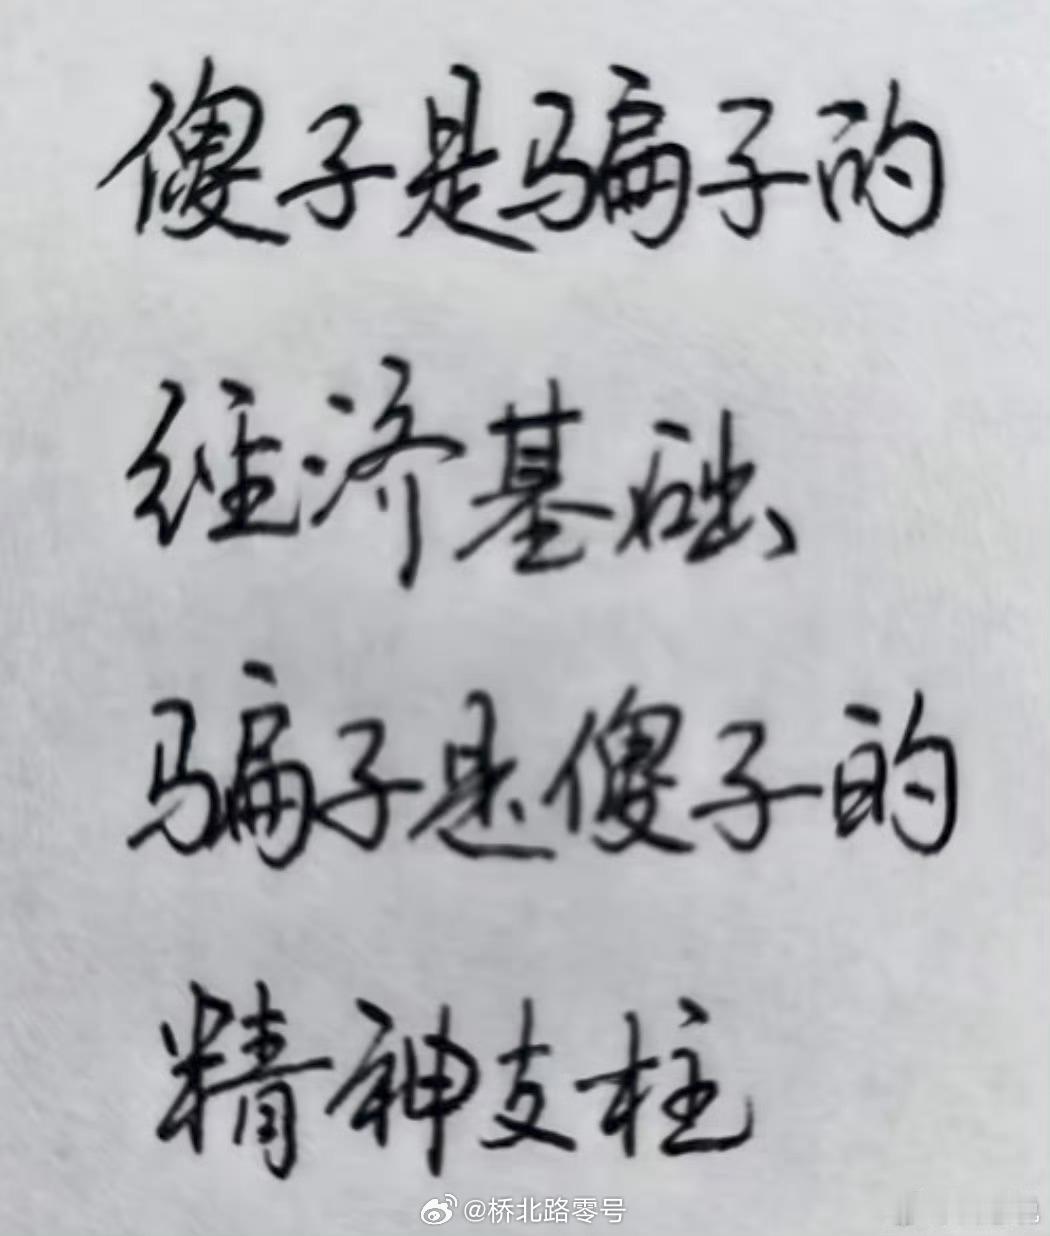 傻子是骗子的
经济基础、
骗子是傻子的
精神支柱
@桥北路零号